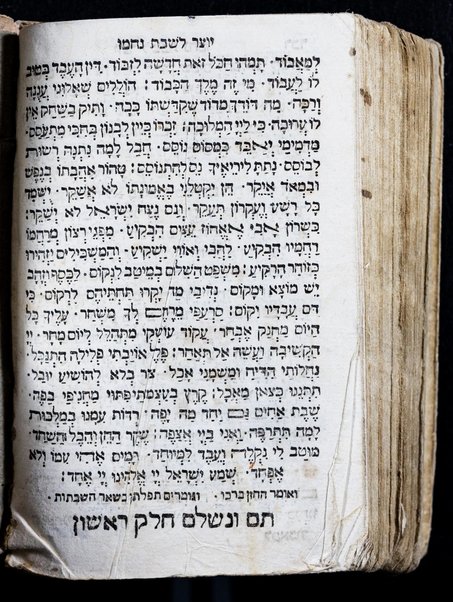 יוצר לשבת נחמו
למאבוד · תמהו חכל זאת חדשה לזבוד · דין העבד בטיב
לו לעבוד · מי זה מלך הכבוד : הוללים שאלוני ענגה
ורכה · מה דודך מדוד שקדשתו ככה · ותיק בשחק אין
לו ערובה · כי ליי המלוכה : זכרו כיין לבנון בחכי מתעסס ·
מדמימי יאבד כמסוס נוסס · חבל למה נתנה רשות
לבוסס · נתת ליריאיך נס להתנוסס : טהור אהבתו בנפש
ובמאד איקר · הן יקטלני באמונתו לא אשקר · ישמד
כל רשע ועקרון תעקר · וגם נצח ישראל לא ישקר :
כשרון אבי אאחוז עצים הבקיע · מפגיע רצון מרחמו
רחמיו הבקיע · להבי ואורי ישקיע · והמשכילים יזהירו
כזוהר הרקיע : משפט השלום במיטב לנקום · לכסף וזהב
יש מוצא ומקום · נדיבי מה יקרו תחתיהם לרקום · כי
דם עבדיו יקום : סרעפי מרחם לך משחר · עליך כל
היום מחנק אבחר · עקוד עושקי מתהלל ליום מחר · יי
הקשיבה ועשה אל תאחר : פלל אויבתי פלילה התנכל ·
נחלותי הדיח ומשמני אכל · צר בלא להושיע יוכל ·
תתננו כצאן מאכל : קרץ בעצמתי פתוי מחניפי בפה ·
שבת אחים גם יחד מה יפה · רדות עמנו במלכות
למה תתרפה · ואני ביי אצפה : שקר החן והבל השחד ·
מוטב לי נקלדה ועבד למיוחד · רמים אדהי עמו ולא
אפחד · שמע ישראל יי אלהינו יי אחד :
ואומר החזן ברכו · וגומרים תפלתן בשאר השבתות ·
תם ונשלם חלק ראשון